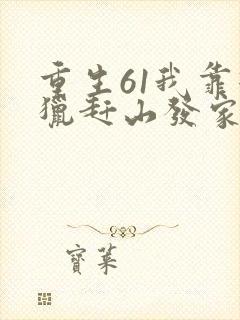 重生61我靠
獵趕山發家
寶葉